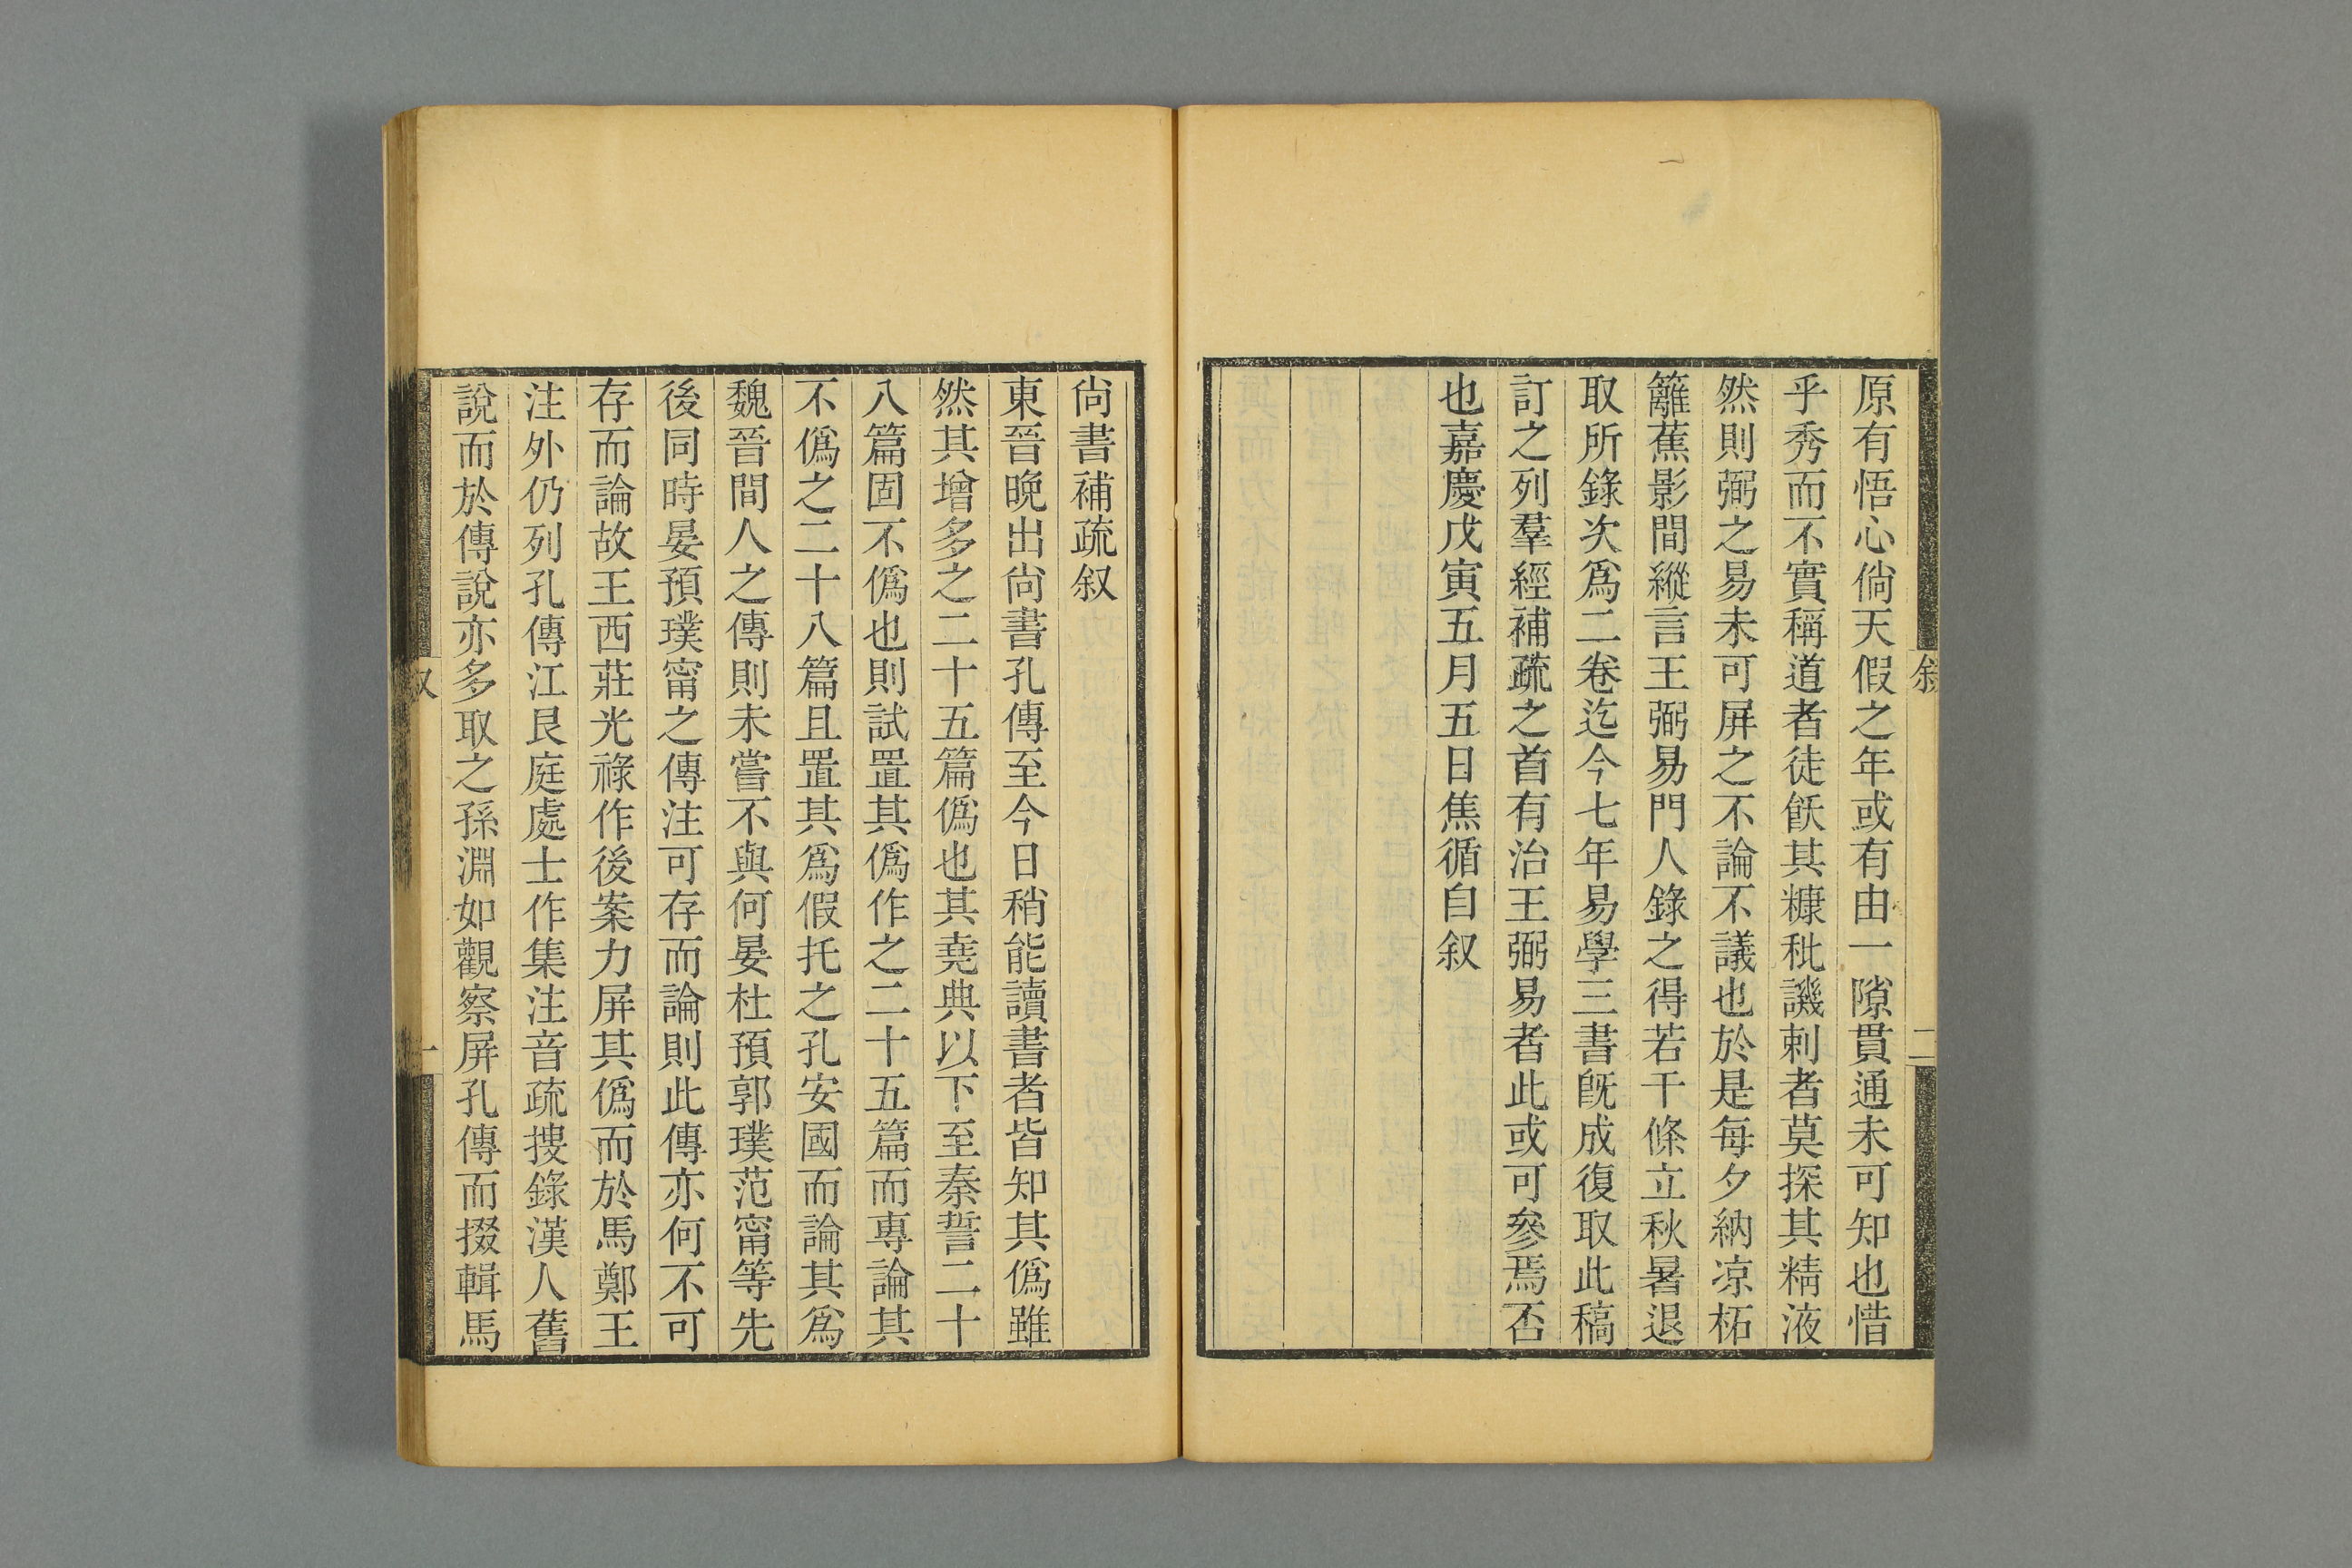 原有悟心倘天假之年或有由一隙貫通未可知也惜
乎秀而不實稱道者徒飫其糠秕譏刺者莫探其精液
然則弼之易未可屏之不論不議也於是每夕納凉柘
籬蕉影間縱言王弼易門人錄之得若干條立秋暑退
取所錄次爲二卷迄今七年易學三書旣成復取此稿
訂之列羣經補疏之首有治王弼易者此或可參焉否
也嘉慶戊寅五月五日焦循自叙
尙書補疏叙
東晉晚出尙書孔傳至今日稍能讀書者皆知其僞雖
然其增多之二十五篇僞也其堯典以下至秦誓二十
八篇固不僞也則試置其僞作之二十五篇而專論其
不僞之二十八篇且置其爲假托之孔安國而論其爲
魏晉間人之傳則未嘗不與何晏杜預郭璞范甯等先
後同時晏預璞甯之傳注可存而論則此傳亦何不可
存而論故王西莊光祿作後案力屏其僞而於馬鄭王
注外仍列孔傳江艮庭處士作集注音疏搜錄漢人舊
說而於傳說亦多取之孫淵如觀察屏孔傳而掇輯馬